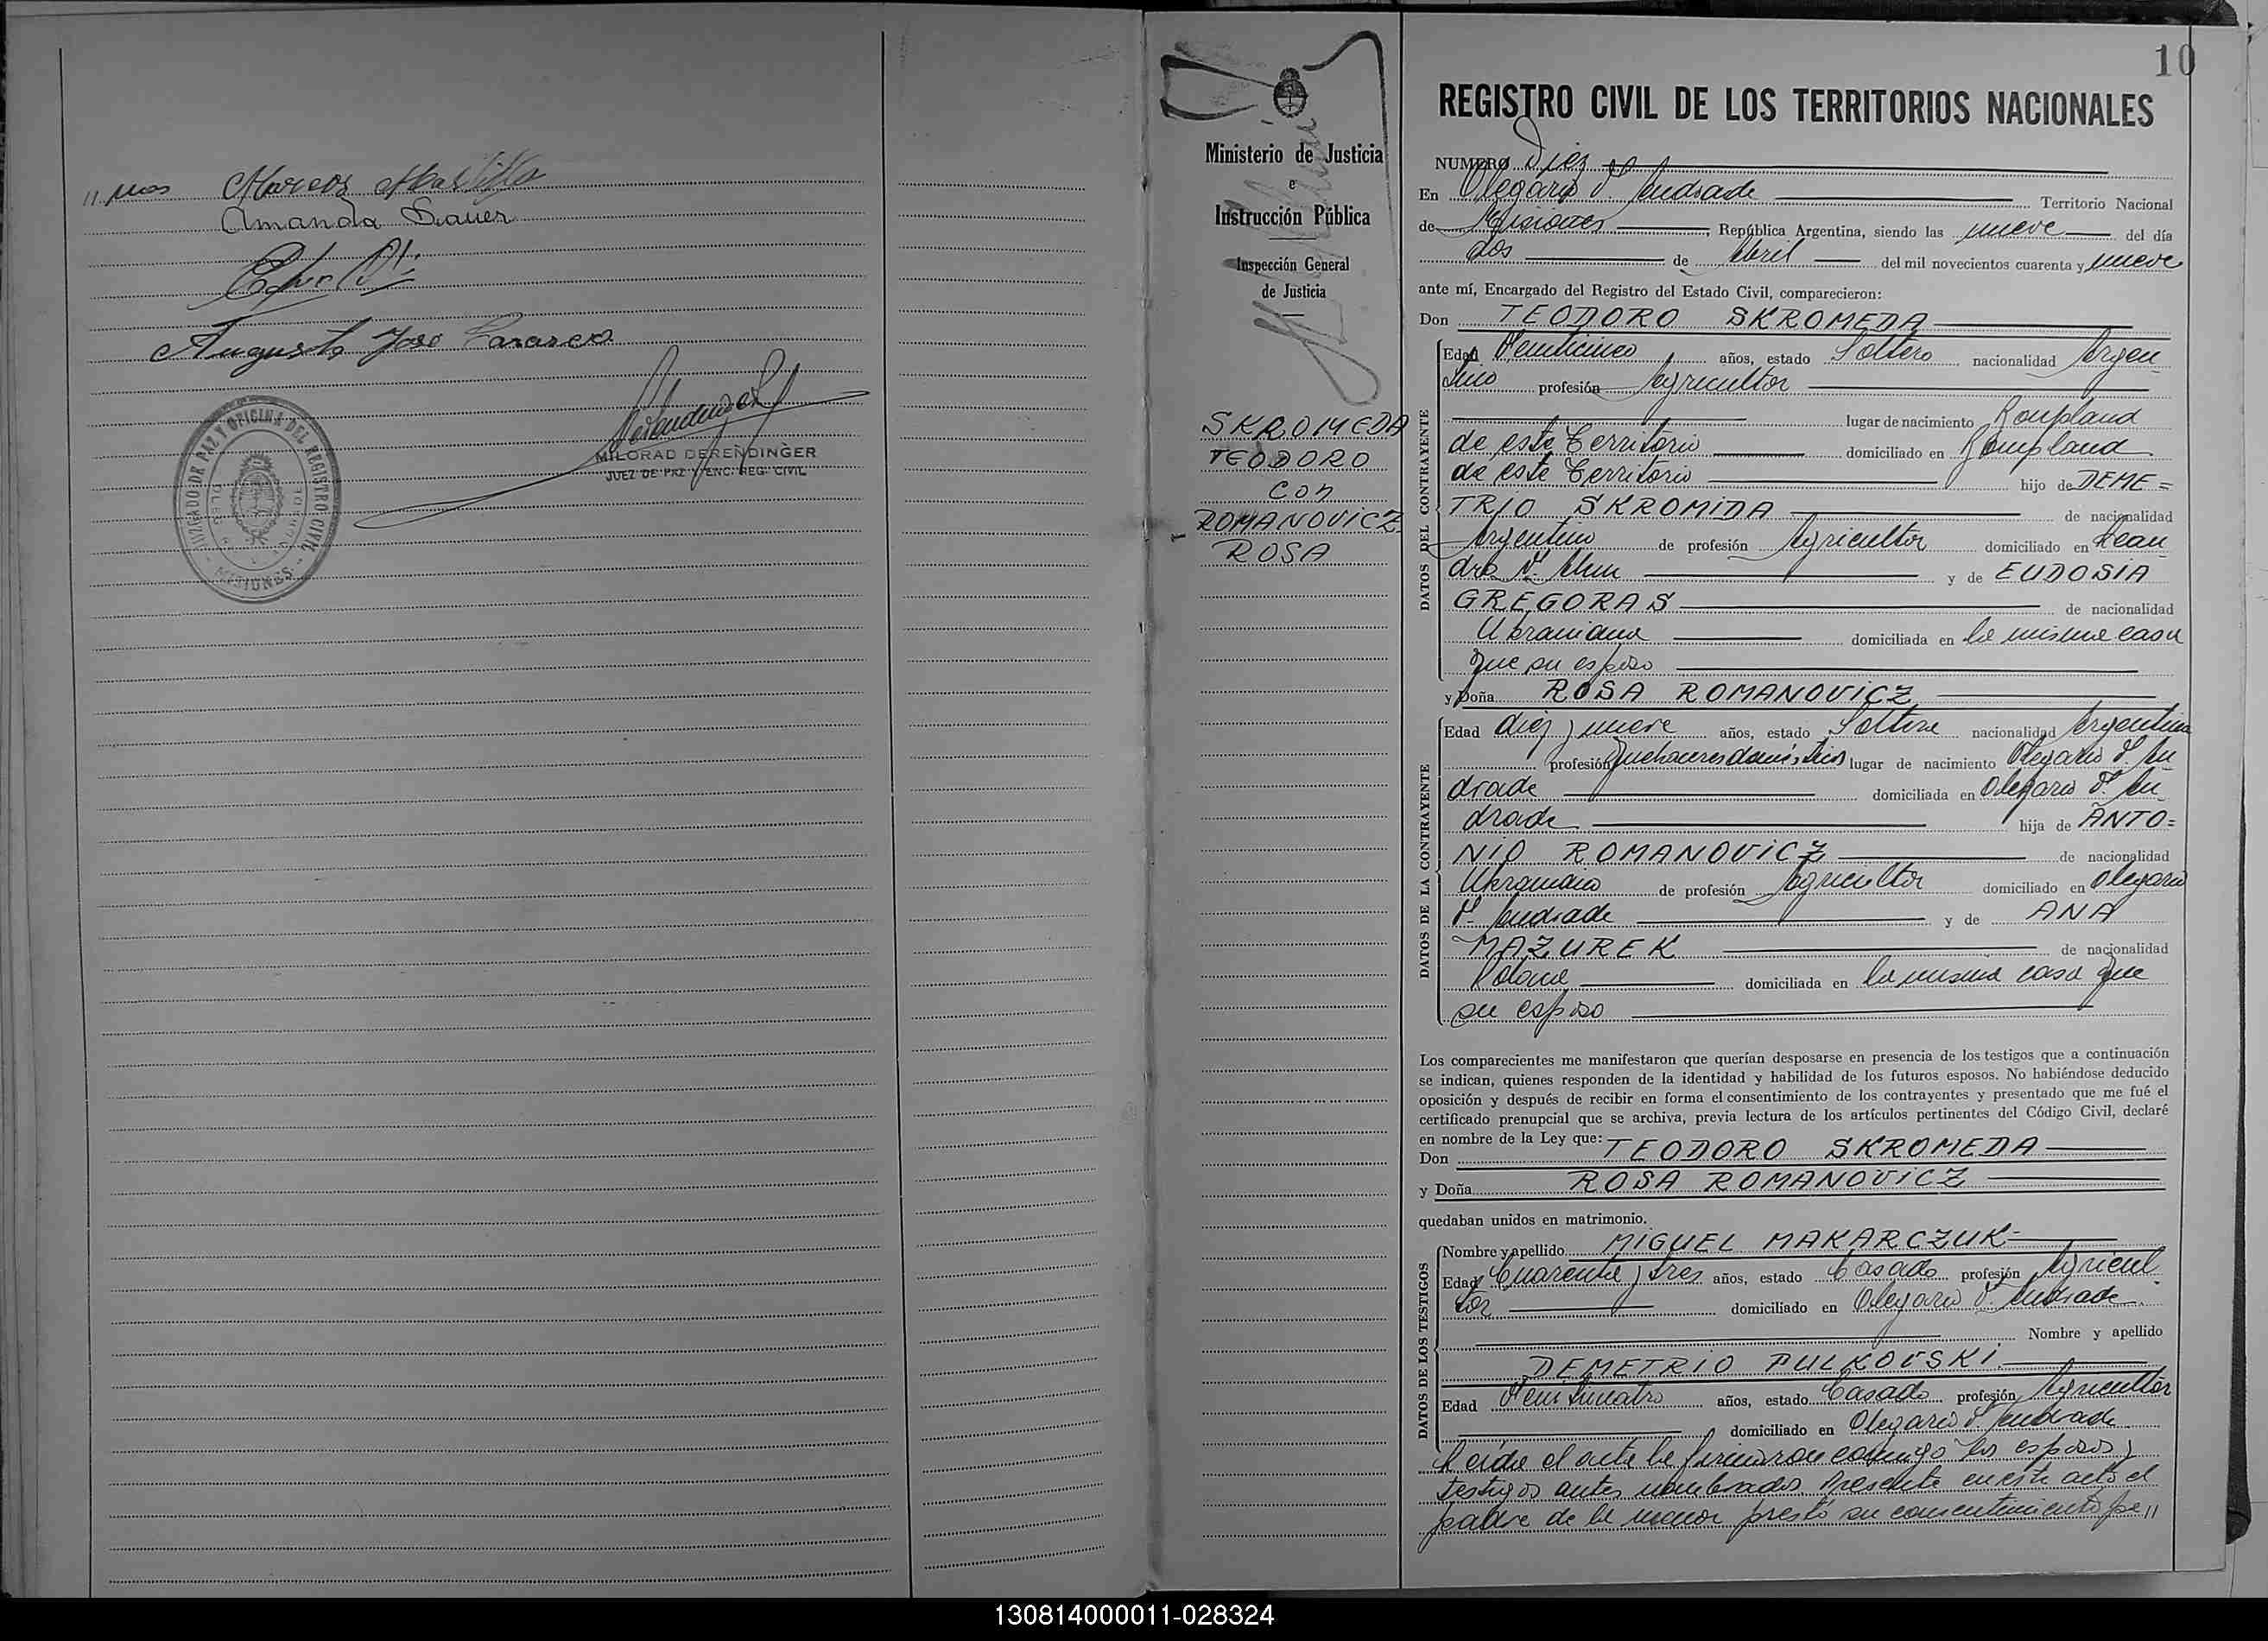 11 mos
Amanda Bauer
Augusto José
MILORAD DERENDINGER
JUEZ DE PAZ Y ENC. REG. CIVIL
JUZGADO DE PAZ Y OFICINA DEL REGISTRO CIVIL
MISIONES
Ministerio de Justicia
e
Instrucción Pública
Inspección General
de Justicia
SKROMEDA
TEODORO
con
ROMANOVICZ
ROSA
10
REGISTRO CIVIL DE LOS TERRITORIOS NACIONALES
NUMERO Diez
En Olegario V. Andrade Territorio Nacional
de Misiones, República Argentina, siendo las nueve del día
dos de Abril del mil novecientos cuarenta y nueve
ante mí, Encargado del Registro del Estado Civil, comparecieron:
Don TEODORO SKROMEDA
DATOS DEL CONTRAYENTE
Edad Venticinco años, estado Soltero nacionalidad Argen
tino profesión Agricultor
lugar de nacimiento
de este Territorio domiciliado en
de este Territorio hijo de DEME=
TRIO SKROMIDA de nacionalidad
Argentino de profesión Agricultor domiciliado en Lean
dro N. Alem y de EUDOSIA
GREGORAS de nacionalidad
Ukraniana domiciliada en la misma casa
que su esposo
y Doña ROSA ROMANOVICZ
DATOS DE LA CONTRAYENTE
Edad diez y nueve años, estado Soltera nacionalidad Argentina
profesión Quehaceres domésticos lugar de nacimiento Olegario V. An
drade domiciliada en Olegario V. An
drade hija de ANTO=
NIO ROMANOVICZ de nacionalidad
Ukraniano de profesión Agricultor domiciliado en Olegario
V. Andrade y de ANA
MAZUREK de nacionalidad
Polaca domiciliada en la misma casa que
su esposo
Los comparecientes me manifestaron que querían desposarse en presencia de los testigos que a continuación
se indican, quienes responden de la identidad y habilidad de los futuros esposos. No habiéndose deducido
oposición y después de recibir en forma el consentimiento de los contrayentes y presentado que me fué el
certificado prenupcial que se archiva, previa lectura de los artículos pertinentes del Código Civil, declaré
en nombre de la Ley que:
Don TEODORO SKROMEDA
y Doña ROSA ROMANOVICZ
quedaban unidos en matrimonio.
DATOS DE LOS TESTIGOS
Nombre y apellido MIGUEL MAKARCZUK
Edad Cuarenta y tres años, estado Casado profesión Agricul
tor domiciliado en Olegario V. Andrade
Nombre y apellido
DEMETRIO PULKOVSKI
Edad Venticuatro años, estado Casado profesión Agricultor
domiciliado en Olegario V. Andrade
Leída el acta la firmaron conmigo los esposos y
testigos antes nombrados Presente en este acto el
padre de la menor prestó su consentimiento fir 11
130814000011-028324